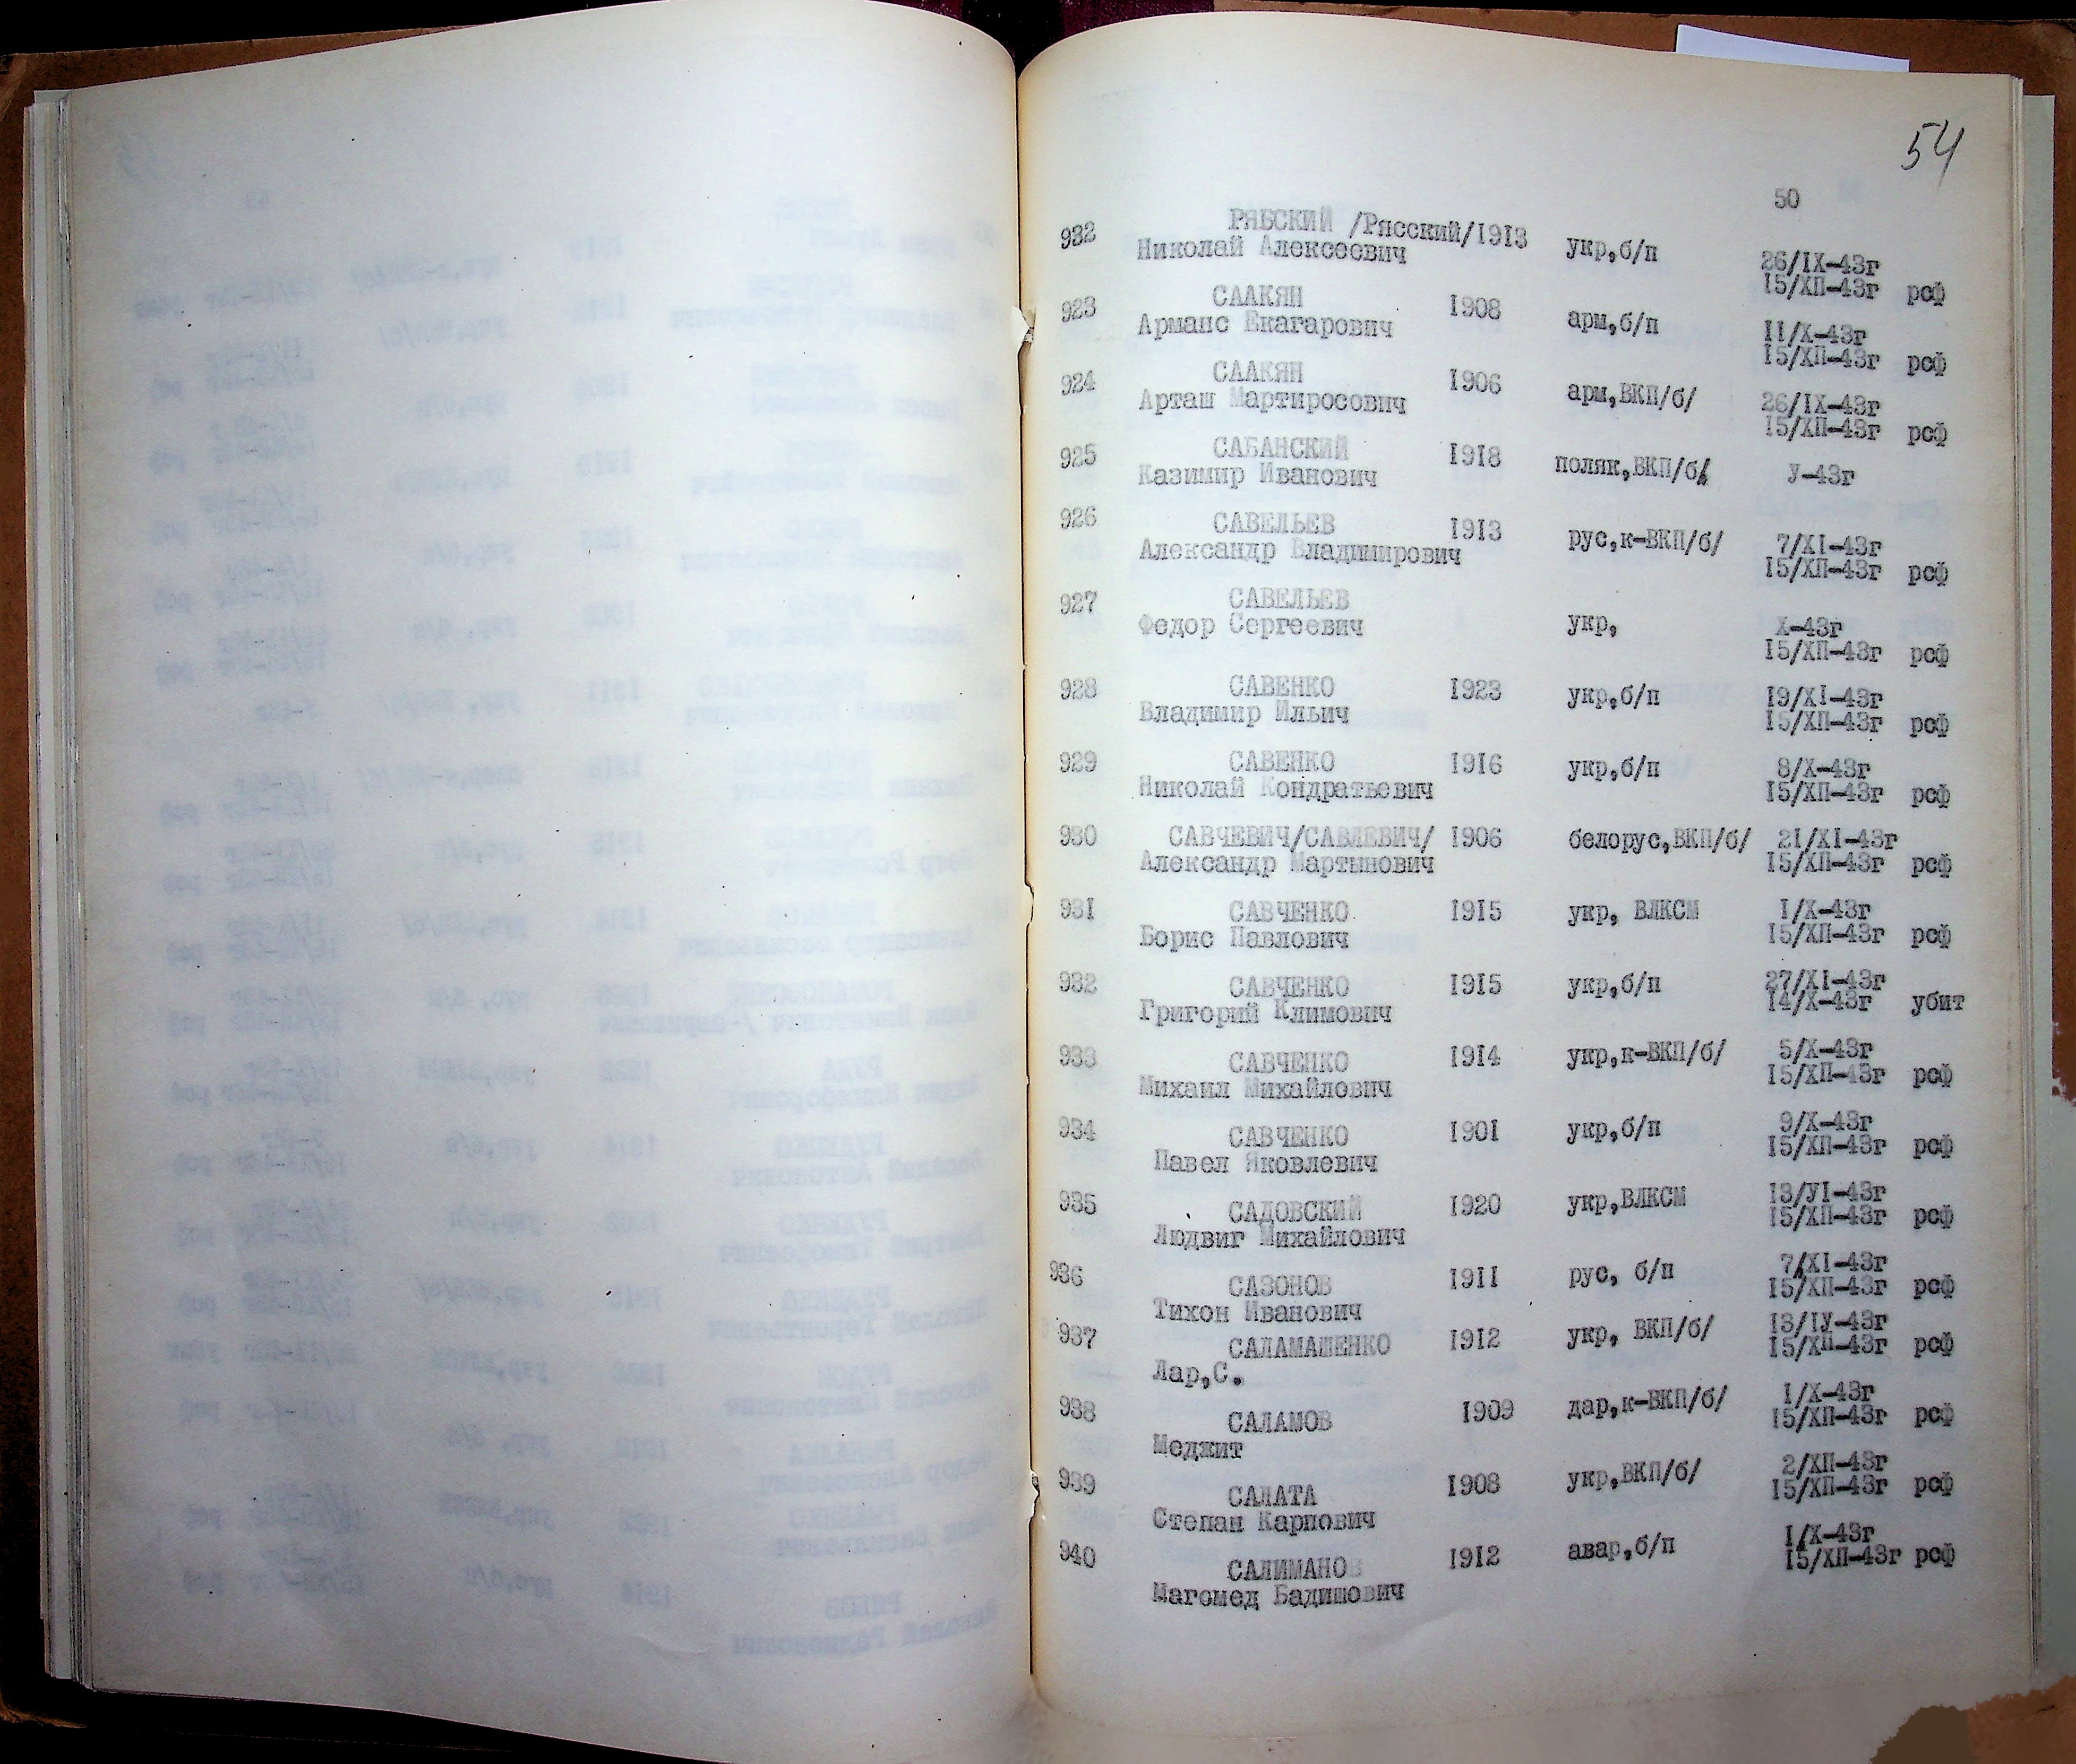 54
50
932 РЯБСКИЙ /Рясский/1913
Николай Алексеевич укр,б/п 26/IX-43г
15/ХП-43г рсф
923 СААКЯН 1908
Арманс Екагарович арм,б/п II/X-43г
15/ХП-43г рсф
924 СААКЯН 1906
Арташ Мартиросович арм,ВКП/б/ 26/IX-43г
15/ХП-43г рсф
925 САБАНСКИЙ 1918
Казимир Иванович поляк,ВКП/б/ У-43г
926 САВЕЛЬЕВ 1913
Александр Владимирович рус,к-ВКП/б/ 7/XI-43г
15/ХП-43г рсф
927 САВЕЛЬЕВ
Федор Сергеевич укр, Х-43г
15/ХП-43г рсф
928 САВЕНКО 1923 укр,б/п 19/XI-43г
Владимир Ильич 15/ХП-43г рсф
929 САВЕНКО 1916 укр,б/п 8/X-43г
Николай Кондратьевич 15/ХП-43г рсф
930 САВЧЕВИЧ/САВЛЕВИЧ/ 1906 белорус,ВКП/б/ 21/XI-43г
Александр Мартынович 15/ХП-43г рсф
931 САВЧЕНКО 1915 укр, ВЛКСМ I/X-43г
Борис Павлович 15/ХП-43г рсф
932 САВЧЕНКО 1915 укр,б/п 27/XI-43г
Григорий Климович 14/X-43г убит
933 САВЧЕНКО 1914 укр,к-ВКП/б/ 5/X-43г
Михаил Михайлович 15/ХП-43г рсф
934 САВЧЕНКО 1901 укр,б/п 9/X-43г
Павел Яковлевич 15/ХП-43г рсф
935 САДОВСКИЙ 1920 укр,ВЛКСМ 13/УI-43г
Людвиг Михайлович 15/ХП-43г рсф
936 САЗОНОВ 1911 рус, б/п 7/XI-43г
Тихон Иванович 15/ХП-43г рсф
937 САЛАМАШЕНКО 1912 укр, ВКП/б/ 13/IУ-43г
Лар,С. 15/ХП-43г рсф
938 САЛАМОВ 1909 дар,к-ВКП/б/ I/X-43г
Меджит 15/ХП-43г рсф
939 САЛАТА 1908 укр,ВКП/б/ 2/ХП-43г
Степан Карпович 15/ХП-43г рсф
940 САЛИМАНОВ 1912 авар,б/п I/X-43г
Магомед Бадишович 15/ХП-43г рсф